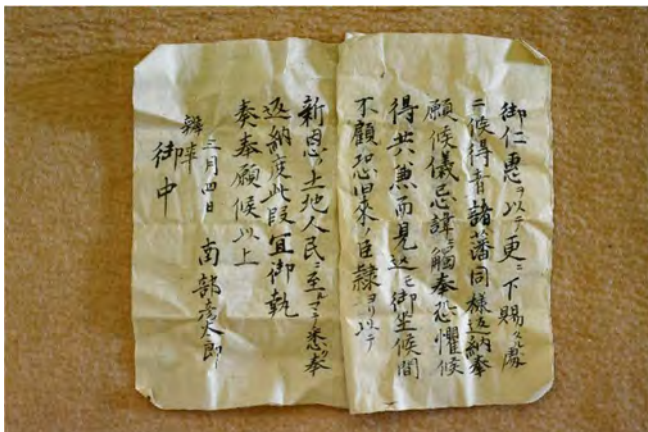 御仁恵ヲ以テ更ニ下賜之處
ニ候得者諸藩同様返納奉
願候儀忌諱ニ觸奉恐懼候
得共兼而見込モ御坐候間
不顧恐旧来ノ臣隷ヨリ以テ
新恩ノ土地人民ニ至ルマテ悉ク奉
返納度此段宜御執
奏奉願候以上
三月四日 南部彦太郎
辨事
御中